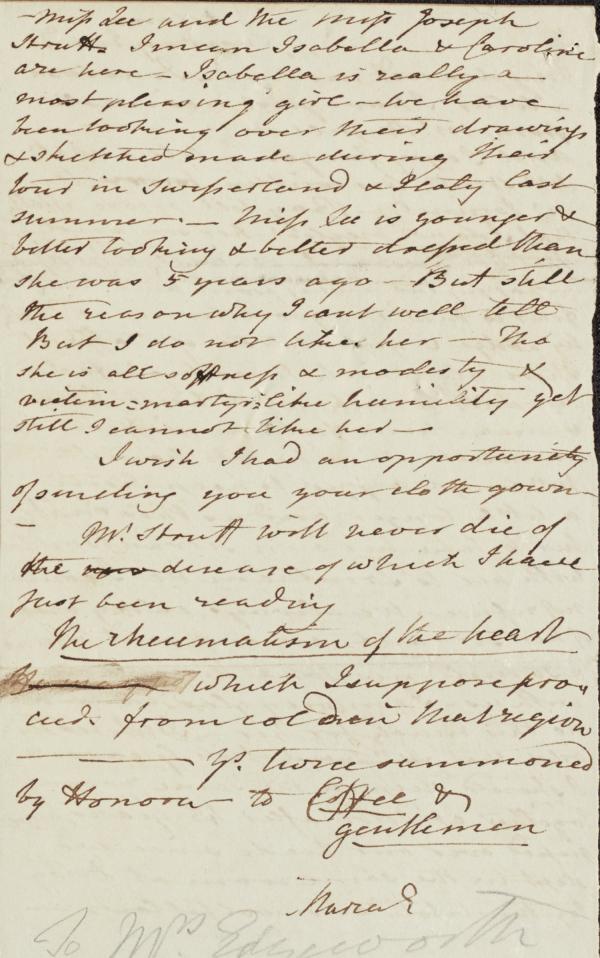 – Miss Lee and the Miss Joseph
Strutts I mean Isabella & Caroline
are here – Isabella is really a
most pleasing girl – We have
been looking over their drawings
& sketches made during their
tour in Swisserland & Italy last
summer. – Miss Lee is younger &
better looking & better dressed than
she was 5 years ago – But still
the reason why I cant well tell
But I do not like her – Tho
she is all softness & modesty &
victim=martyr=like humility yet
still I cannot like her –
I wish I had an opportunity
of sending you your cloth gown –
– Mr. Strutt will never die of
the disease of which I have
just been reading
The rheumatism of the heart
which I suppose pro
ceeds from cold in that region
Yr. twice summoned
by Honora to Coffee &
gentlemen
Maria E
To Mrs Edgeworth